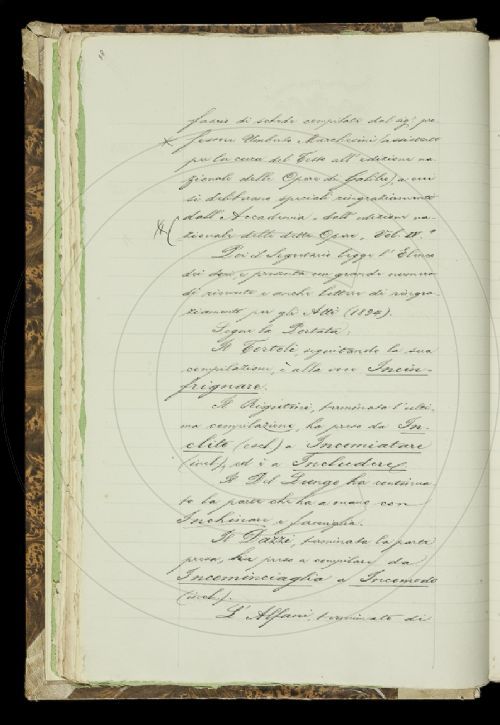 fascio di schede compilate dal sig.r pro
fessore Umberto Marchesini (assistente
per la cura del Testo all'edizione na
zionale delle Opere di Galileo), a cui
si deliberano speciali ringraziamenti
dall'Accademia, dell'edizione na
zionale delle dette Opere, Vol. IV.
Poi il Segretario legge l'Elenco
dei doni, e presenta un grande numero
di ricevute e anche lettere di ringra
ziamento per gli Atti (1894).
Segue la Portata.
Il Tortoli, seguitando la sua
compilazione, è alla voce Incin-
frignare.
Il Rigutini, terminata l'ulti
ma compilazione, ha preso da In-
clito (escl.) a Incomiatare
(incl.), ed è a Includere.
Il Del Lungo ha continua
to la parte che ha a mano con
Inchinare e famiglia.
Il Dazzi, terminata la parte
presa, ha preso a compilare da
Incominciaglia a Incomodo
(incl.).
L'Alfani, terminato di